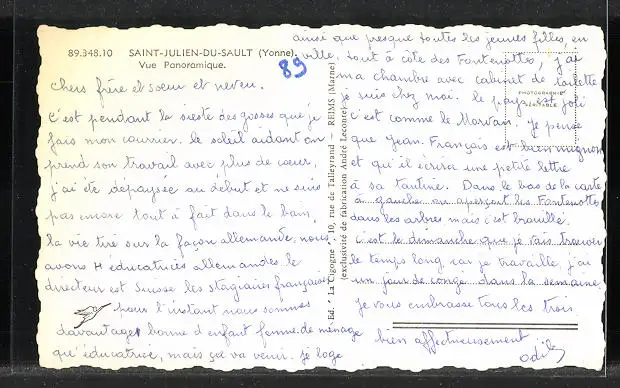 89.348.10 SAINT-JULIEN-DU-SAULT (Yonne).
Vue Panoramique.
89
chers frère et sœur et neveu.
c'est pendant la sieste des gosses que je
fais mon courrier. le soleil aidant on
prend son travail avec plus de cœur.
j'ai été dépaysée au début et ne suis
pas encore tout à fait dans le bain.
la vie tire sur la façon allemande, nous
avons 4 éducatrices allemandes le
directeur est suisse les stagiaires françaises
pour l'instant nous sommes
davantage bonne d'enfant femme de ménage
qu'éducatrice, mais ça va venir. je loge
Ed. "La Cigogne", 10, rue de Talleyrand - REIMS (Marne)
(exclusivité de fabrication André Leconte)
PHOTOGRAPHIE
VÉRITABLE
ainsi que presque toutes les jeunes filles, en
ville, tout à côté des Fontenottes, j'ai
ma chambre avec cabinet de toilette
je suis chez moi. le pays est joli
c'est comme le Morvan. Je pense
que Jean-François est bien mignon
et qu'il écrira une petite lettre
à sa tantine. Dans le bas de la carte
à gauche on aperçoit les Fontenottes
dans les arbres mais c'est brouillé.
c'est le dimanche que je vais trouver
le temps long car je travaille j'ai
un jour de congé dans la semaine.
Je vous embrasse tous les trois.
bien affectueusement
Odile